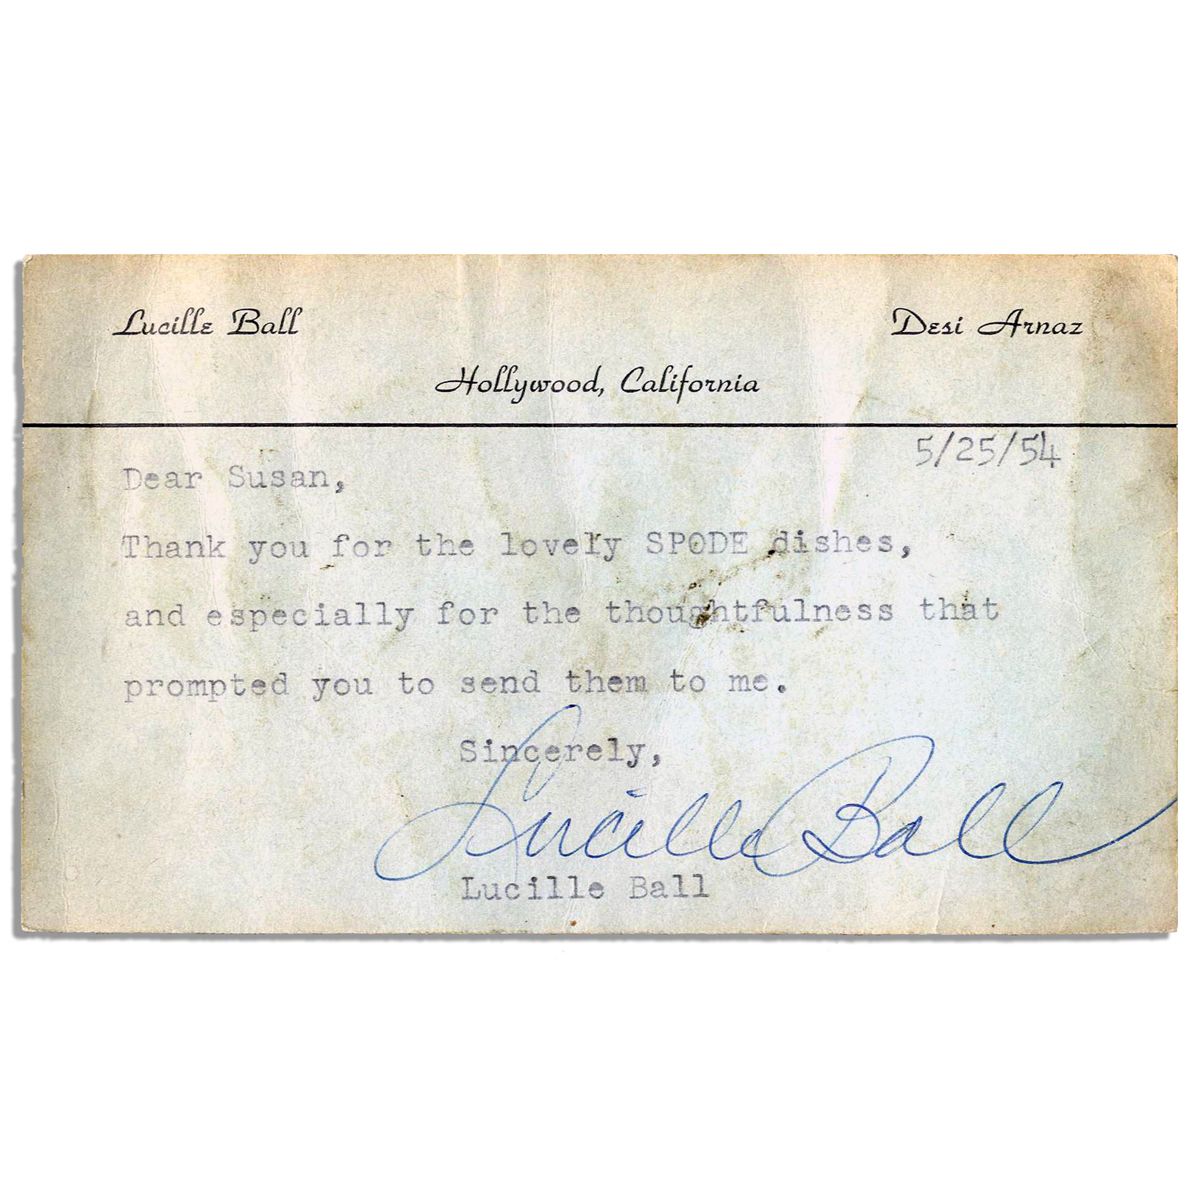 Lucille Ball Desi Arnaz
Hollywood, California
5/25/54
Dear Susan,
Thank you for the lovely SPODE dishes,
and especially for the thoughtfulness that
prompted you to send them to me.
Sincerely,
Lucille Ball
Lucille Ball